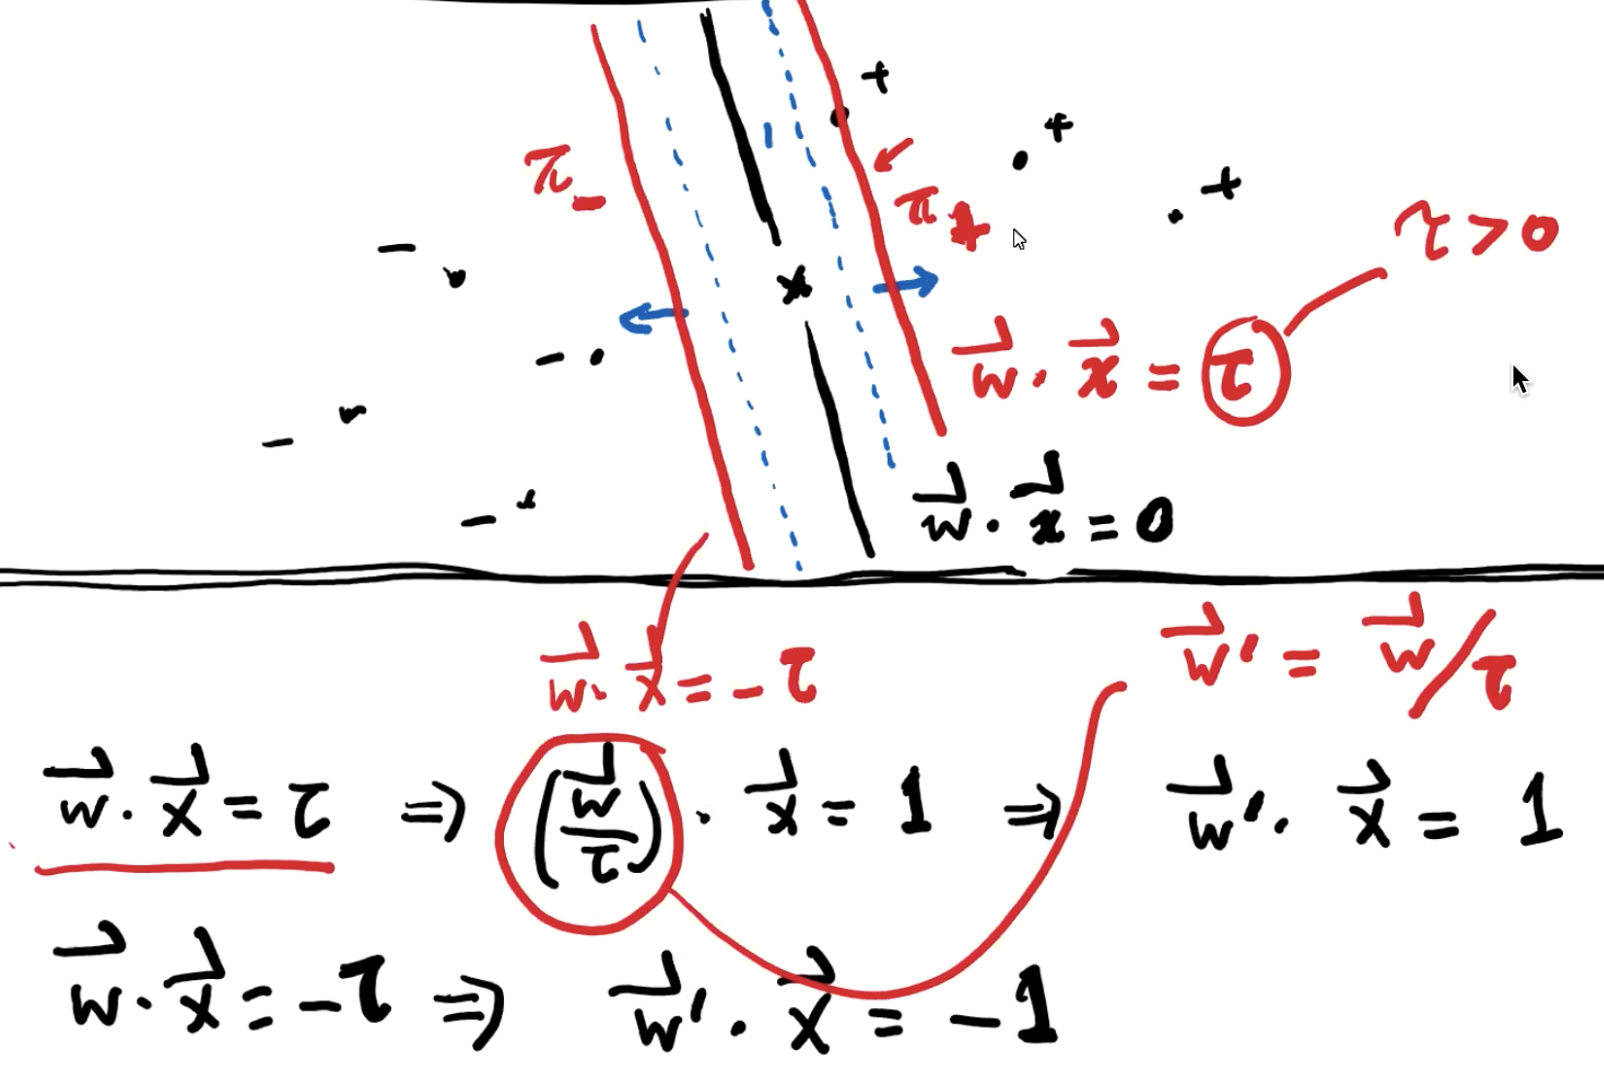 +
+
+
π₋
π₊
τ > 0
−
x
w⃗ · x⃗ = τ
− 
−
−
w⃗ · x⃗ = 0
w⃗ · x⃗ = − τ
w⃗' = w⃗/τ
w⃗ · x⃗ = τ ⇒ (w⃗/τ) · x⃗ = 1 ⇒ w⃗' · x⃗ = 1
w⃗ · x⃗ = −τ ⇒ w⃗' · x⃗ = −1